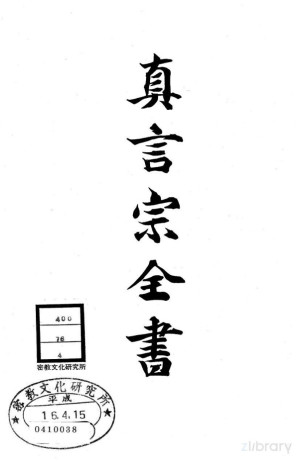 真言宗全書
400
76
4
密教文化研究所
★密教文化研究所★
平成
16.4.15
0410038
zlibrary